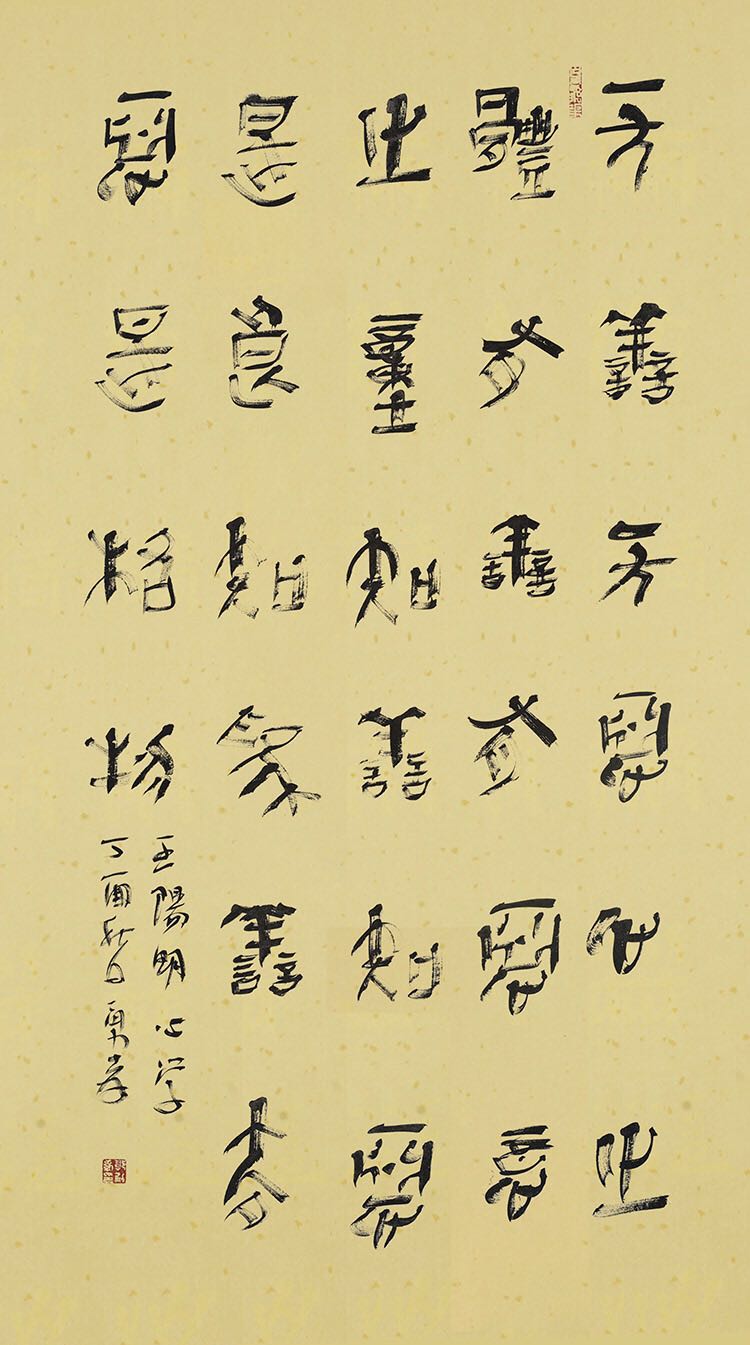 无善无惡心之
體有善有惡意
之動知善知惡
是良知為善去
惡是格物
王陽明心学
丁酉秋日